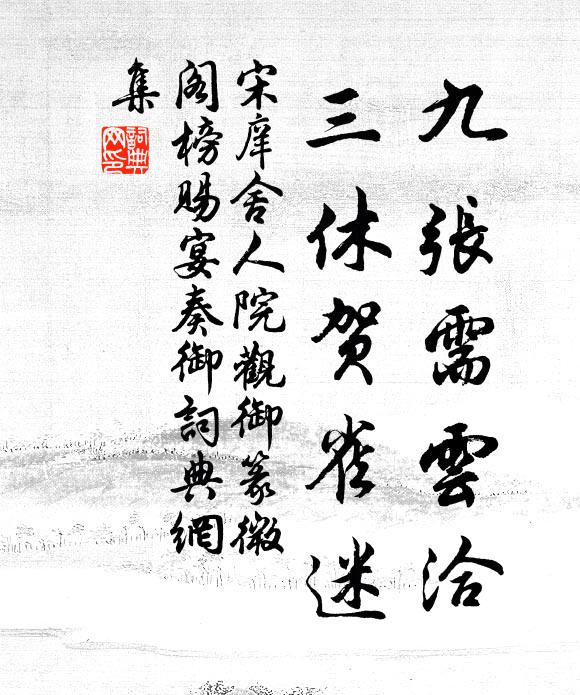 九張需雲洽
三休賀雀迷
宋庠舍人院觀御篆微
閣榜賜宴奏御詞典網
集
詞典
网印